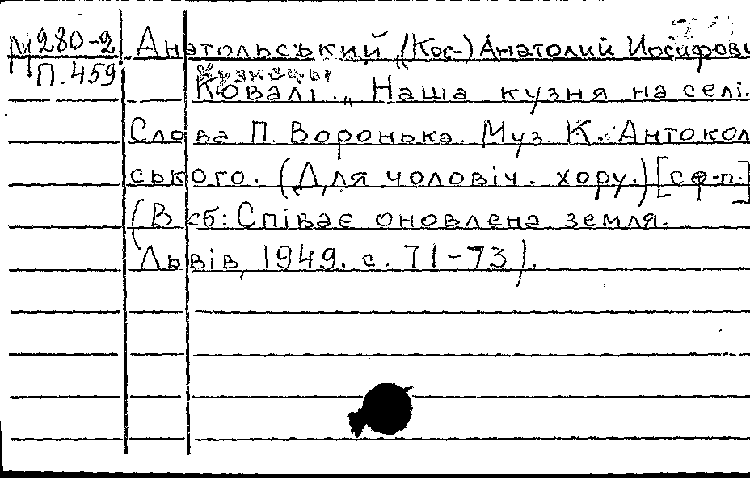 М280-2 Анатольський, (Кос-) Анатолий Иосифови
П.459 Кузнецы
Ковалі. „Наша кузня на селі.
Слова П. Воронька. Муз К. Антокол
ського. (Для чоловіч. хору.) [с ф-п.]
(В сб: Співає оновлена земля.
Львів, 1949. с. 71-73).